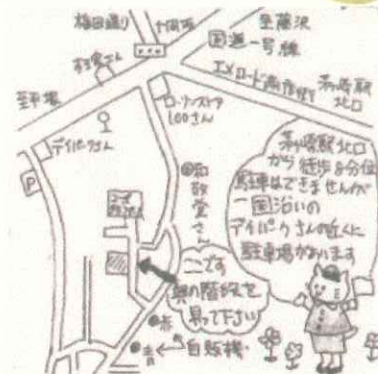 梅田通り
十間坂
至藤沢
国道一号線
至平塚
エメロード商店街
茅ヶ崎駅
北口
ローソンストア
100さん
デイパークさん
P
ここです
奥の階段を
昇って下さい
赤
青
自販機
茅ヶ崎駅北口
から徒歩8分位
駐車はできませんが
一国沿いの
デイパークさんの近くに
駐車場があります